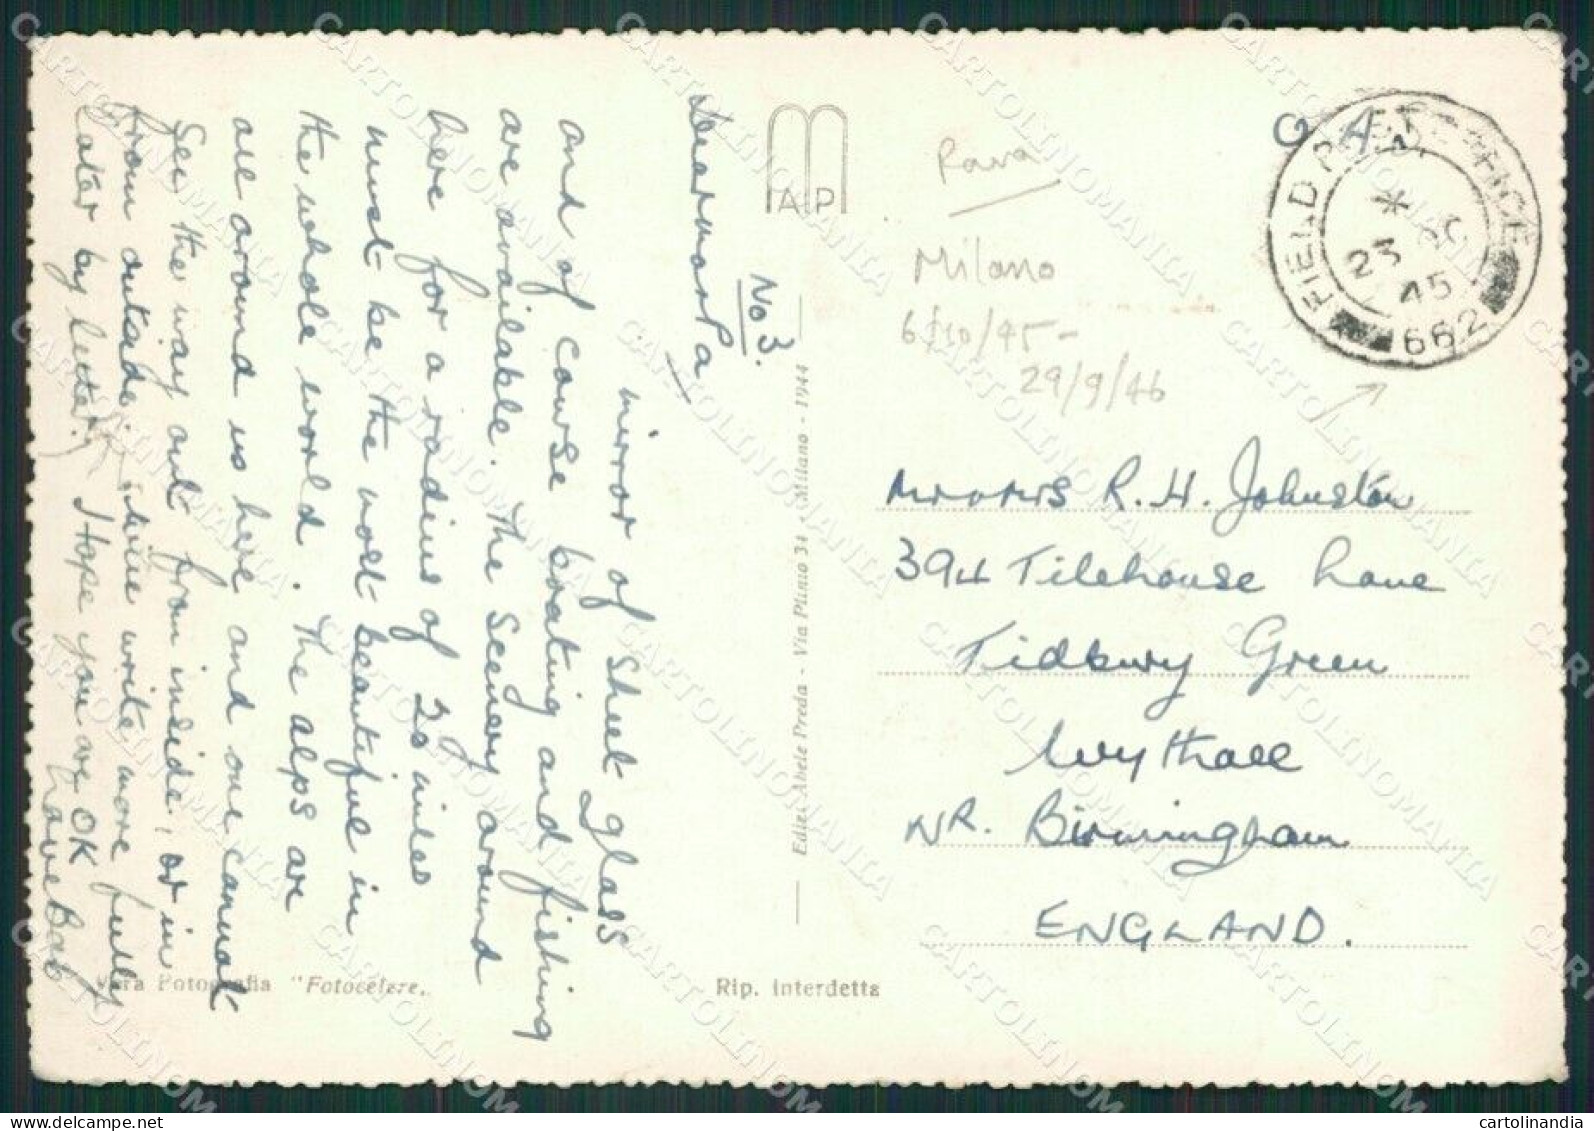 No 3.
Dear Ma & Pa
mirror of sheet glass
and of course boating and fishing
are available. The scenery around
here for a radius of 20 miles
must be the most beautiful in
the whole world. The alps are
all around us here and one cannot
see the way out from inside, or in
from outside. Will write more fully
later by letter. Hope you are OK
Love Bob
AP
Rava
Milano
6/10/45 -
29/9/46
O A.
FIELD POST OFFICE
*
23
45
662
Mr & Mrs R. H. Johnston
394 Tilehouse Lane
Tidbury Green
Wythall
NR. Birmingham
ENGLAND.
Ediz. Abele Preda - Via Plinio 34 - Milano - 1944
Vera Fotografia "Fotocelere"
Rip. interdetta
CARTOLINOMANIA
cartolinandia